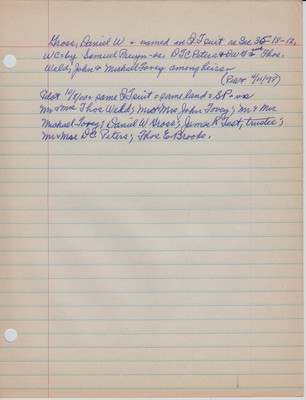 Gross, Daniel W - named in QT suit re Sec 35-18-12,
WC - by Samuel Pruyn - vs. DTC Peters & DW G & Thos.
Weld, John & Michael Tovey among heirs -
(Rev 4/11/98)
Publ 10/8/10 - same QT suit - same land - SP - vs
Mr & Mrs Thos Weld; Mr & Mrs John Tovey; Mr & Mrs
Michael Tovey; Daniel W Gross; James R Test, trustee;
Mr & Mrs DC Peters; Thos E Brooks.